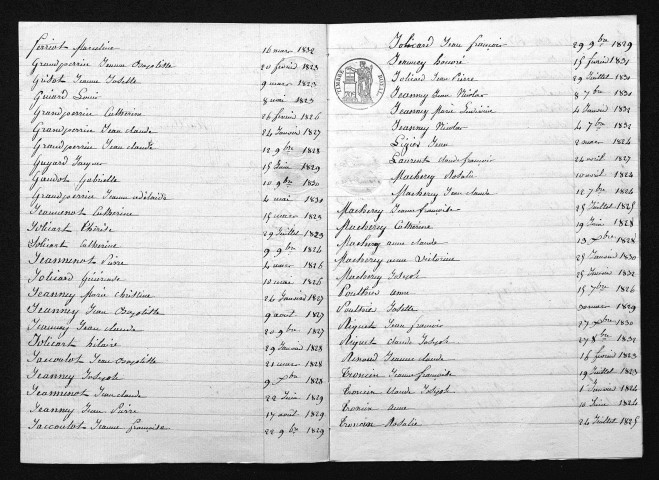 ferriot Marceline 16 mars 1832
Grandperrin Jeanne Baptiste 20 février 1823
Gridot Jeanne Josette 9 mars 1823
Guiard Louis 8 mai 1823
Grandperrin Catherine 26 février 1826
Grandperrin Jean claude 24 Janvier 1827
Grandperrin Jean claude 12 9bre 1828
Guyard Jacques 15 Juin 1829
Gaudot Gabrielle 10 9bre 1830
Grandperrin Jeanne adelaide 4 mai 1831
Jeannenot Catherine 15 mars 1823
Jolicart thérèse 29 Juillet 1823
Jolicart Catherine 9 9bre 1824
Jeannenot Pierre 4 mars 1826
Jolicard 10 mai 1826
Jeanney Marie Christine 24 Janvier 1827
Jeanney Jean Baptiste 9 août 1827
Jeanney Jean claude 20 9bre 1827
Jolicart hilaire 29 Janvier 1828
Jaccoulot Jean Baptiste 21 mars 1828
Jeanney Joseph 9 Xbre 1828
Jeannenot Jean claude 22 Juin 1829
Jeanney Jean Pierre 17 août 1829
Jaccoulot Jeanne françoise 22 9bre 1829
Jolicard Jean françois 29 9bre 1829
Jeanney honoré 15 février 1831
Jolicard Jean Pierre 29 Juillet 1831
Jeanney Jean Nicolas 8 7bre 1831
Jeanney Marie Ludivine 4 Janvier 1832
Jeanney Nicolas 4 7bre 1832
Ligier Jean 2 mars 1824
Laurent claude françois 24 avril 1827
Macherey Rosalie 10 avril 1824
Macherey Jean claude 12 7bre 1824
Macherey Jeanne françoise 25 Juillet 1825
Macherey Catherine 19 Juin 1828
Macherey anne claude 13 Xbre 1828
Macherey anne Victorine 25 Janvier 1830
Macherey Joseph 25 Janvier 1832
Poulthier anne 15 7bre 1826
Poulthier Josette 30 mars 1829
Riquet Jean françois 27 Xbre 1830
Riquet claude Joseph 27 8bre 1831
Renaud Jeanne claude 16 février 1823
Troncin Jeanne françoise 19 Juillet 1823
Troncin claude Joseph 1er février 1824
Troncin anne 10 Juin 1824
Troncin Rosalie 24 Juillet 1825
TIMBRE ROYAL